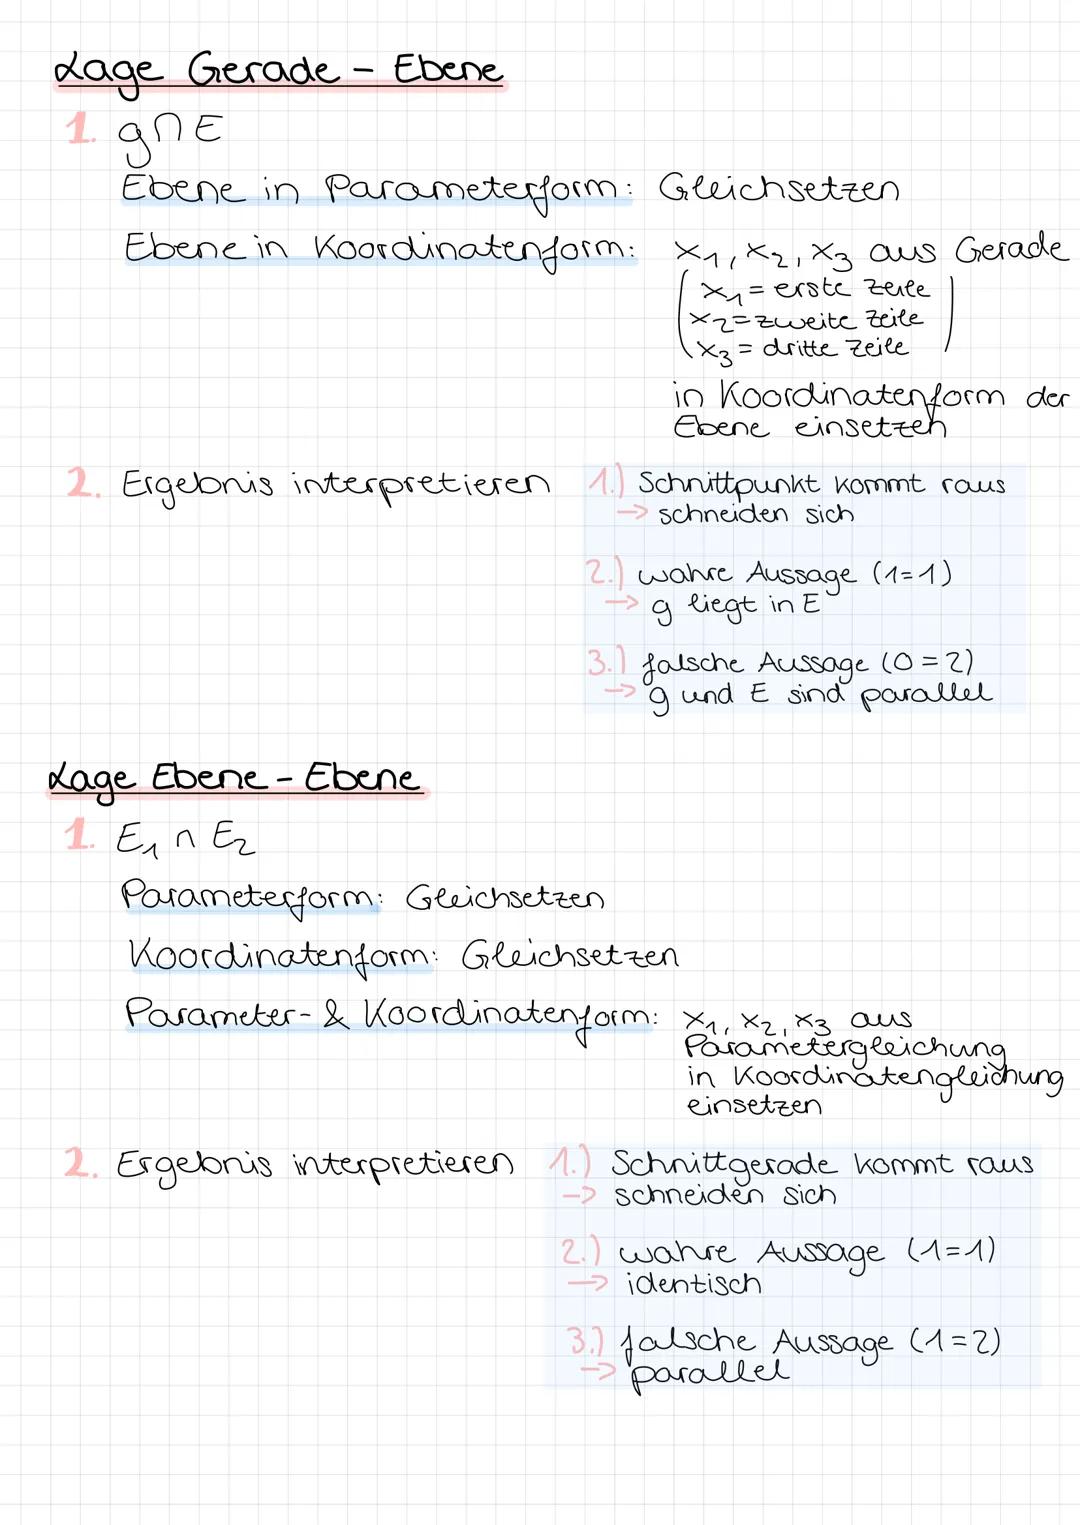 Lage Gerade - Ebene
1. g∩E
Ebene in Parameterform: Gleichsetzen
Ebene in Koordinatenform: x₁, x₂, x₃ aus Gerade
(x₁ = erste Zeile
x₂ = zweite Zeile
x₃ = dritte Zeile)
in Koordinatenform der
Ebene einsetzen
2. Ergebnis interpretieren 1.) Schnittpunkt kommt raus
→ schneiden sich
2.) wahre Aussage (1=1)
→ g liegt in E
3.) falsche Aussage (0=2)
→ g und E sind parallel
Lage Ebene - Ebene
1. E₁ ∩ E₂
Parameterform: Gleichsetzen
Koordinatenform: Gleichsetzen
Parameter- & Koordinatenform: x₁, x₂, x₃ aus
Parametergleichung
in Koordinatengleichung
einsetzen
2. Ergebnis interpretieren 1.) Schnittgerade kommt raus
→ schneiden sich
2.) wahre Aussage (1=1)
→ identisch
3.) falsche Aussage (1=2)
→ parallel